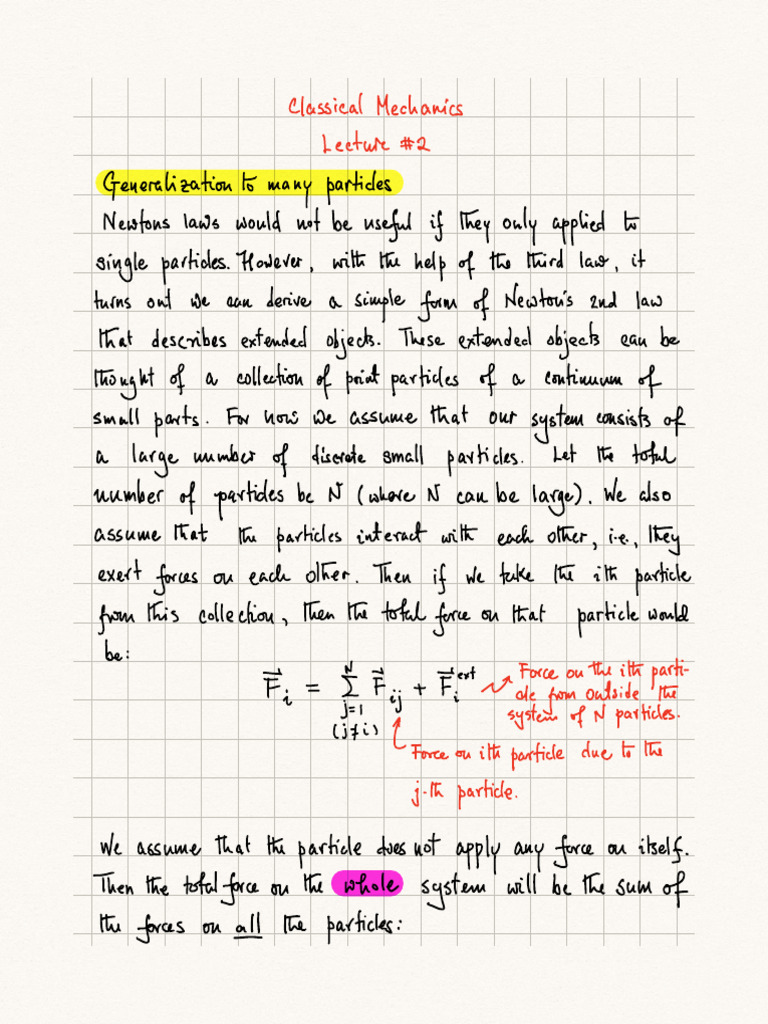 Classical Mechanics
Lecture #2
Generalization to many particles
Newtons laws would not be useful if they only applied to
single particles. However, with the help of the third law, it
turns out we can derive a simple form of Newton's 2nd law
that describes extended objects. These extended objects can be
thought of a collection of point particles of a continuum of
small parts. For now we assume that our system consists of
a large number of discrete small particles. Let the total
number of particles be N (where N can be large). We also
assume that the particles interact with each other, i.e., they
exert forces on each other. Then if we take the ith particle
from this collection, then the total force on that particle would
be:
$\vec{F}_i = \sum_{\substack{j=1 \\ (j \neq i)}}^{N} \vec{F}_{ij} + \vec{F}_i^{ext}$
Force on the ith parti-
cle from outside the
system of N particles.
Force on ith particle due to the
j-th particle.
We assume that the particle does not apply any force on itself.
Then the total force on the whole system will be the sum of
the forces on all the particles: